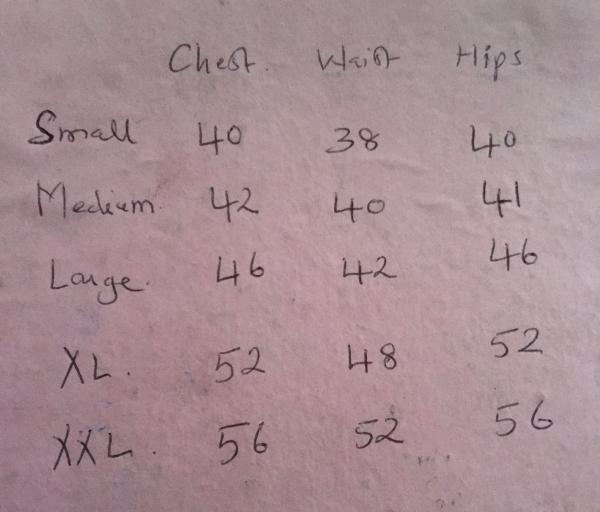 Chest. Waist Hips
Small 40 38 40
Medium. 42 40 41
Large. 46 42 46
XL. 52 48 52
XXL. 56 52 56